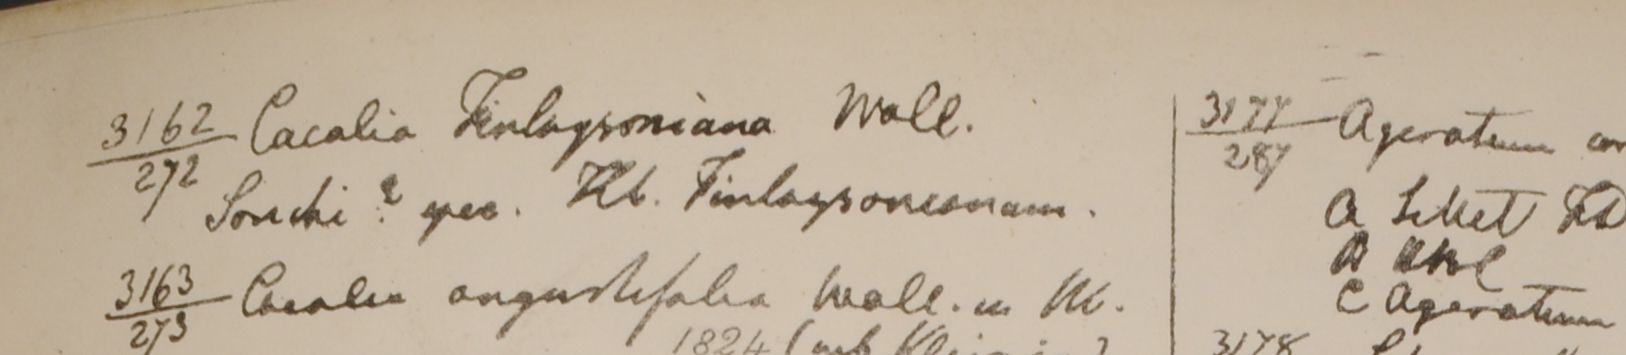 3162/272 Cacalia Finlaysoniana Wall.
Sonchi? spec. Hb. Finlaysonianum.
3163/273 Cacalia angustifolia Wall. in Hb.
1824 (sub
3177/287 Ageratum
a Silhet
B
C Ageratum
3178